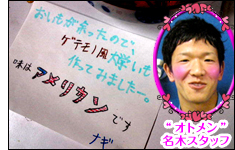 おしもが余ったので、
ゲテモノ風味いも
作てみました〜。
味はアメリカンです
ナギ
"オトメン"
名木スタッフ